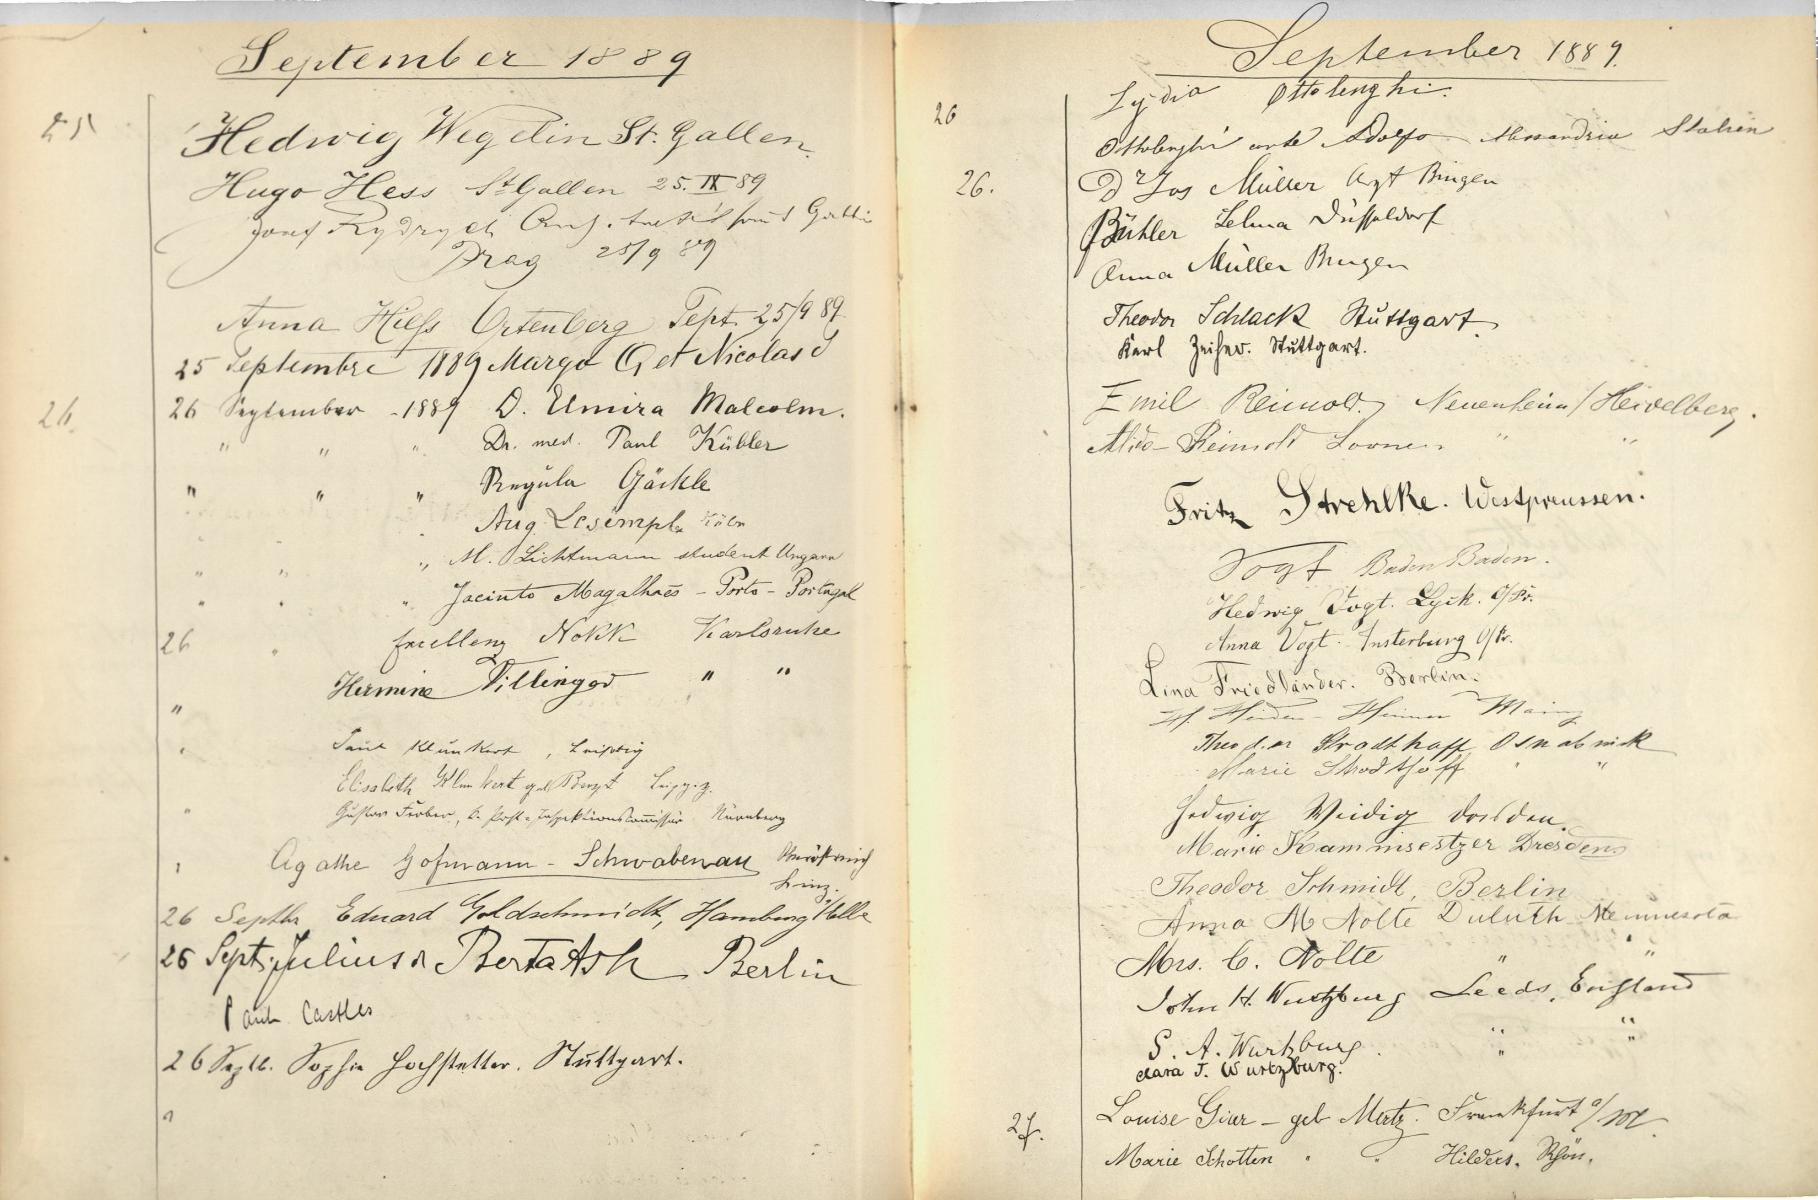 September 1889
25
Hedwig Wegelin St. Gallen.
Hugo Hess St Gallen 25. IX 89
Prag 25/9 89
Anna Hess Ortenberg Sept. 25/9 89.
25 Septembre 1889 Margo G et Nicolas
26.
26 September - 1889 D. Elmira Malcolm.
" " " Dr. med. Paul Kübler
" " " Regula Gäckle
Aug. Köln
" " " M. Lichtmann student Ungarn
" " " Jacinto Magalhaes - Porto - Portugal
26 " Excellenz Nokk Karlsruhe
Hermine Villinger " "
"
" Paul Klunkert, Leipzig
Elisabeth Klunkert geb. Leipzig.
" Gustav Fröber, k. Post-Inspektionscommissär Nürnberg
" Agathe Hofmann - Schwabenau
Linz.
26 Septbr Eduard Goldschmidt, Hamburg
26 Sept. Julius & Berta Ash Berlin
Castles
26 Septb. Sophie Hochstetter. Stuttgart.
"
September 1889.
26
Lydia Ottolenghi.
Ottolenghi Adolfo Alessandria Italien
26.
Dr Jos Müller Arzt Bingen
Bühler Selma Düsseldorf
Anna Müller Bingen
Theodor Schlack Stuttgart
Karl Stuttgart.
Emil Reinold Neuenheim/Heidelberg.
Reinold " "
Fritz Strehlke. Westpreussen.
Vogt Baden Baden.
Hedwig Vogt. Lyck. O/Pr.
Anna Vogt. Insterburg O/Pr.
Lina Friedländer. Berlin.
Mainz
Theodor Strodthoff Osnabrück
Marie Strodthoff " "
Hedwig Weidig Dresden.
Marie Kammsetzer Dresden
Theodor Schmidt, Berlin
Anna M Nolte Duluth Mennesota
Mrs. C. Nolte " "
John H. Wurtzburg Leeds, England
S. A. Wurtzburg. " "
Clara J. Wurtzburg. "
27.
Louise Gier - geb Mertz. Frankfurt a/M.
Marie Schotten " " Hilders. Rhön.